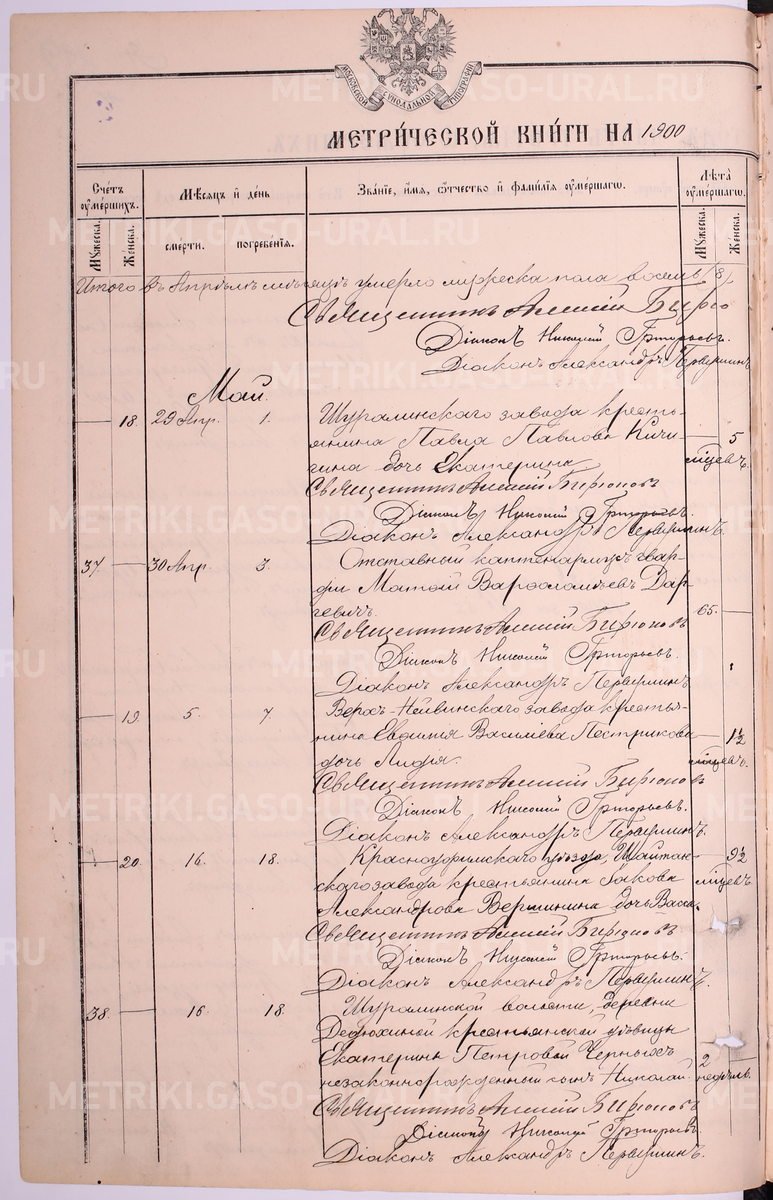 МОСКОВСКОЙ СѴНОДАЛЬНОЙ ТИПОГРАФІИ
МЕТРИ́ЧЕСКОЙ КНИ́ГИ НА 1900
Счётъ оумéршихъ.
Мѣсяцъ и҆ де́нь
Зва́нїе, и҆́мя, ѻ҆́тчество и҆ фами́лїя оумéршагѡ.
Лѣ́та оумéршагѡ.
Мꙋжеска.
Женска.
смерти.
погребе́нїя.
Мꙋжеска.
Женска.
Итого въ Апрѣлѣ мѣсяцѣ умерло мужеска пола восемь (8)
Священникъ Алексій Бирю
Діаконъ Николай Григорьевъ.
Діаконъ Александръ Первушинъ
Май.
— 18. 29 Апр. 1. Шуралинскаго завода кресть-
янина Павла Павлова Кичи- — 5
гина дочь Екатерина мѣсецевъ.
Священникъ Алексій Бирюковъ
Діаконъ Николай Григорьевъ.
Діаконъ Александръ Первушинъ.
37 — 30 Апр. 3. Отставный каптенармусъ гвар-
діи Матѳій Варѳоломѣевъ Дар-
гевичъ. 65. —
Священникъ Алексій Бирюковъ
Діаконъ Николай Григорьевъ.
Діаконъ Александръ Первушинъ
— 19 5. 7. Верхъ-Нейвинскаго завода крестья-
нина Евѳимія Васильева Пестрикова — 1½
дочь Лидія. мѣсецевъ.
Священникъ Алексій Бирюковъ
Діаконъ Николай Григорьевъ.
Діаконъ Александръ Первушинъ.
— 20. 16. 18. Красноуфимскаго уѣзда, Шайтан- — 9½
скаго завода крестьянина Іакова мѣсецевъ
Александрова Вершинина дочь Васса.
Священникъ Алексій Бирюковъ
Діаконъ Николай Григорьевъ.
Діаконъ Александръ Первушинъ.
38. — 16. 18. Шуралинской волости, деревни
крестьянской вдовицы
Екатерины Петровой Черныхъ 2 —
незаконнорожденный сынъ Николай недѣль.
Священникъ Алексій Бирюковъ
Діаконъ Николай Григорьевъ.
Діаконъ Александръ Первушинъ.
METRIKI.GASO-URAL.RU